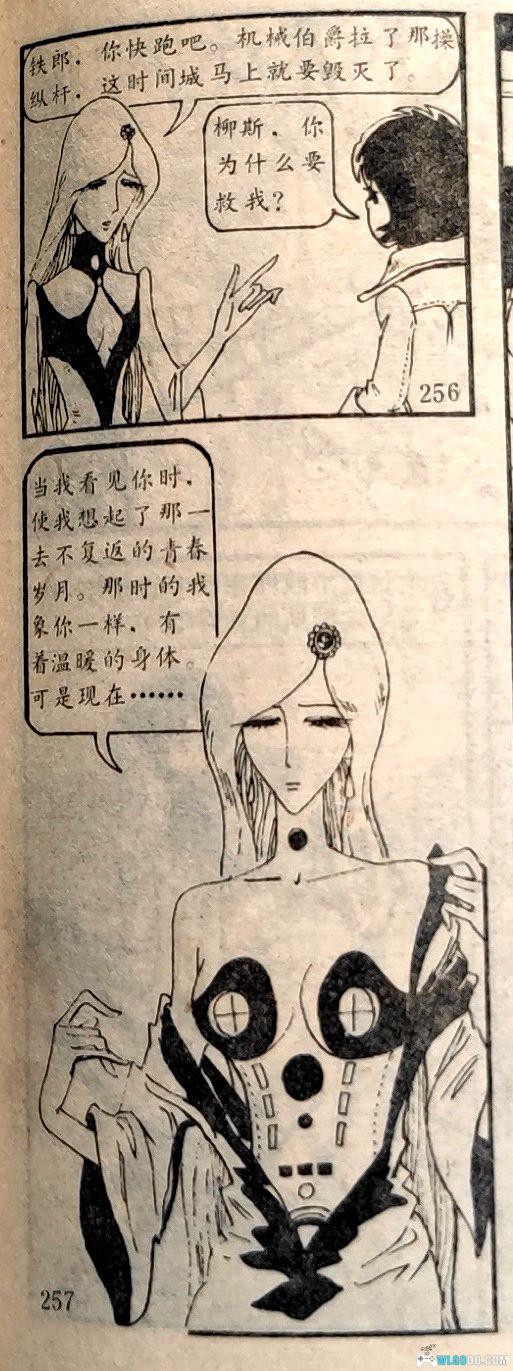 铁郎，你快跑吧。机械伯爵拉了那操
纵杆，这时间城马上就要毁灭了。
柳斯，你
为什么要
救我？
256
当我看见你时，
使我想起了那一
去不复返的青春
岁月。那时的我
象你一样，有
着温暖的身体。
可是现在……
257
WLGOOO.COM